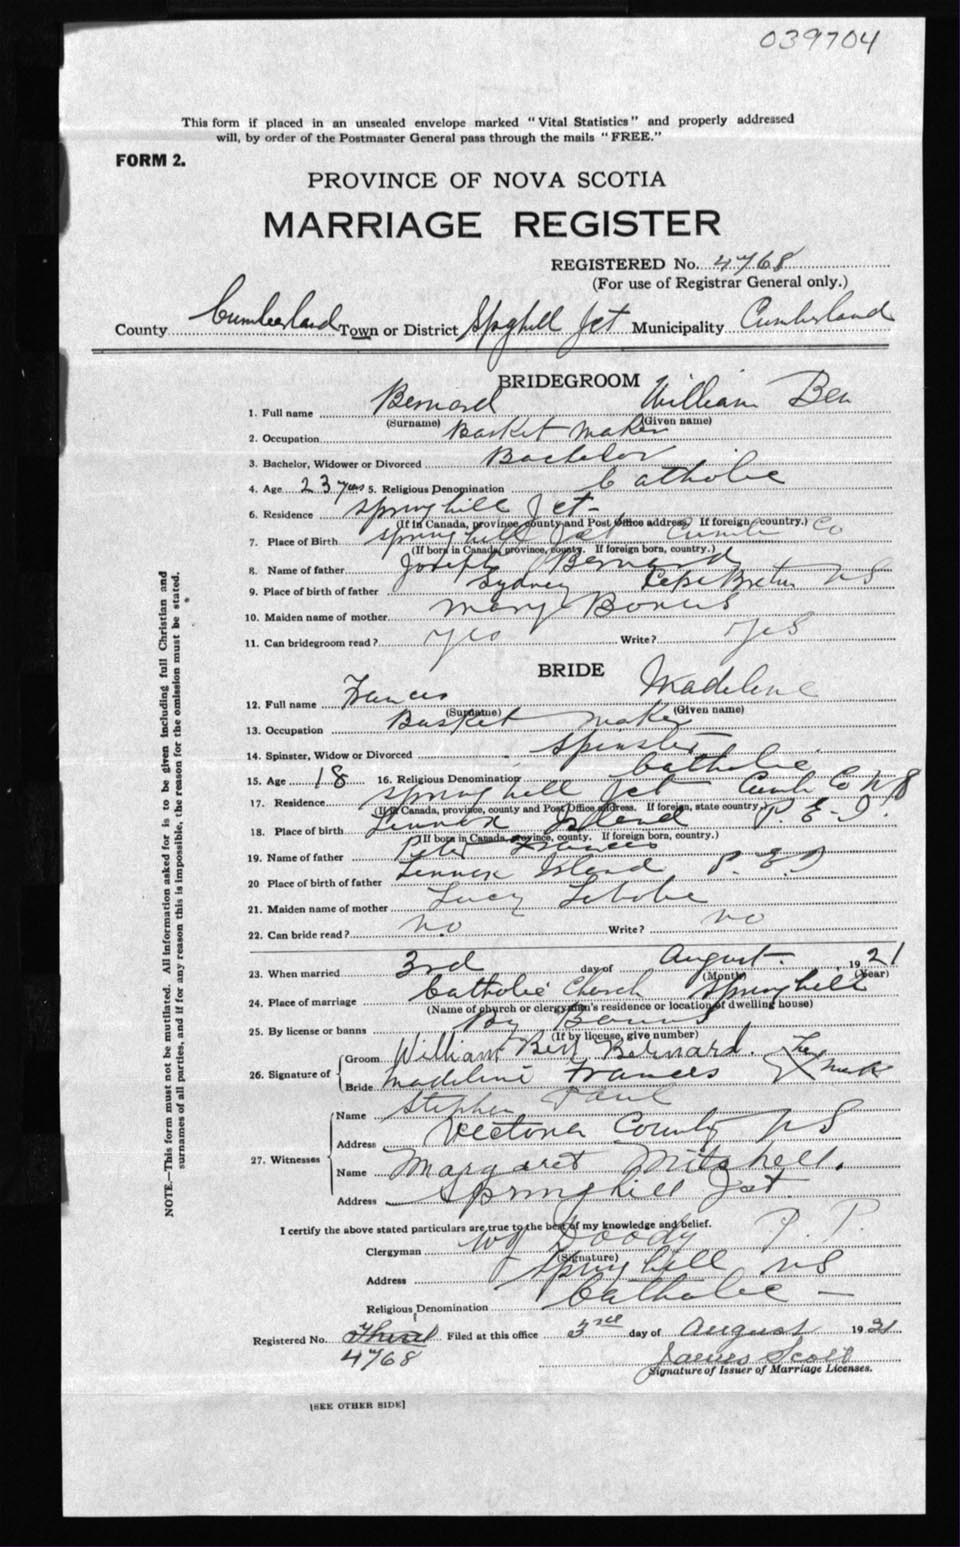 039704
This form if placed in an unsealed envelope marked "Vital Statistics" and properly addressed
will, by order of the Postmaster General pass through the mails "FREE."
FORM 2.
PROVINCE OF NOVA SCOTIA
MARRIAGE REGISTER
REGISTERED No. 4768
(For use of Registrar General only.)
County Cumberland Town or District Spghill Jct Municipality Cumberland
BRIDEGROOM
1. Full name Bernard William Ben
(Surname) (Given name)
2. Occupation Basket Maker
3. Bachelor, Widower or Divorced Bachelor
4. Age 23 years 5. Religious Denomination Catholic
6. Residence Springhill Jct-
(If in Canada, province, county and Post Office address, If foreign country.)
7. Place of Birth Springhill Jct Cumb Co
(If born in Canada, province, county. If foreign born, country.)
8. Name of father Joseph Bernard
9. Place of birth of father Sydney Cape Breton NS
10. Maiden name of mother Mary
11. Can bridegroom read? yes Write? yes
BRIDE
12. Full name Frances Madeline
(Surname) (Given name)
13. Occupation Basket maker
14. Spinster, Widow or Divorced Spinster
15. Age 18 16. Religious Denomination Catholic
17. Residence Springhill Jct Cumb Co NS
(If in Canada, province, county and Post Office address. If foreign, state country.)
18. Place of birth Lennox Island P.E.I.
(If born in Canada, province, county. If foreign born, country.)
19. Name of father Peter Frances
20 Place of birth of father Lennox Island P.E.I
21. Maiden name of mother Lucy
22. Can bride read? no Write? no
23. When married 3rd day of August 1921
(Month) (Year)
24. Place of marriage Catholic Church Springhill
(Name of church or clergyman's residence or location of dwelling house)
25. By license or banns By Banns
(If by license, give number)
26. Signature of
Groom William Ben Bernard.
Bride Madeline Frances Her X mark
27. Witnesses
Name Stephen Paul
Address Victoria County NS
Name Margaret Mitchell.
Address Springhill Jct.
I certify the above stated particulars are true to the best of my knowledge and belief.
Clergyman Doody P. P.
(Signature)
Address Springhill NS
Religious Denomination Catholic —
Registered No. Third Filed at this office 3rd day of August 1921
4768
James Scott
Signature of Issuer of Marriage Licenses.
[SEE OTHER SIDE]
NOTE.—This form must not be mutilated. All information asked for is to be given including full Christian and
surnames of all parties, and if for any reason this is impossible, the reason for the omission must be stated.